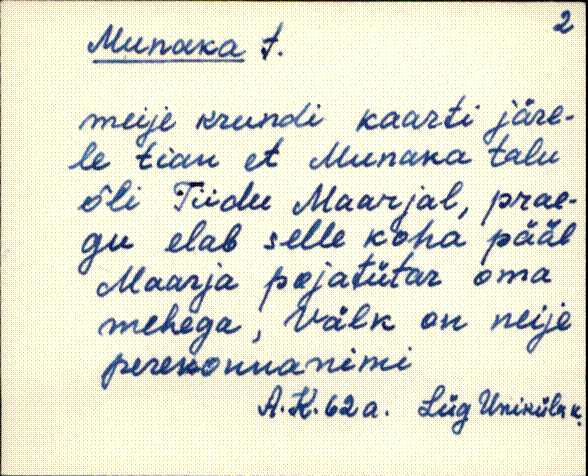 2
Munaka t.
meije krundi kaarti järe-
le tiau et Munaka talu
õli Tiidu Maarjal, prae-
gu elab selle koha pääl
Maarja pojatütar oma
mehega, Välk on neije
perekonnanimi
A. K. 62 a. Lüg Uniküla k.